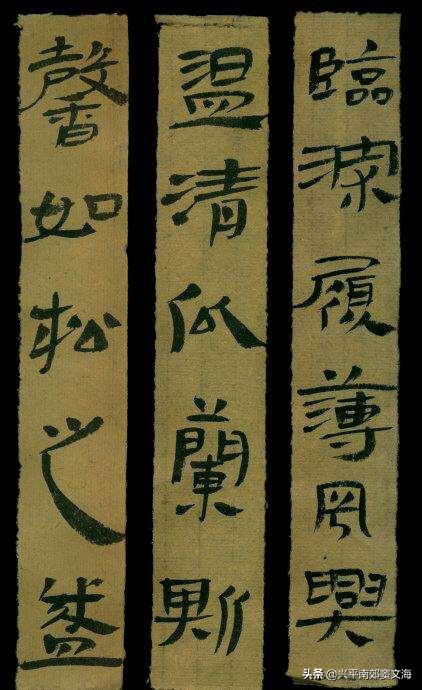 臨深履薄夙興
温清似蘭斯
馨如松之盛
头条 @兴平南郊窦文海